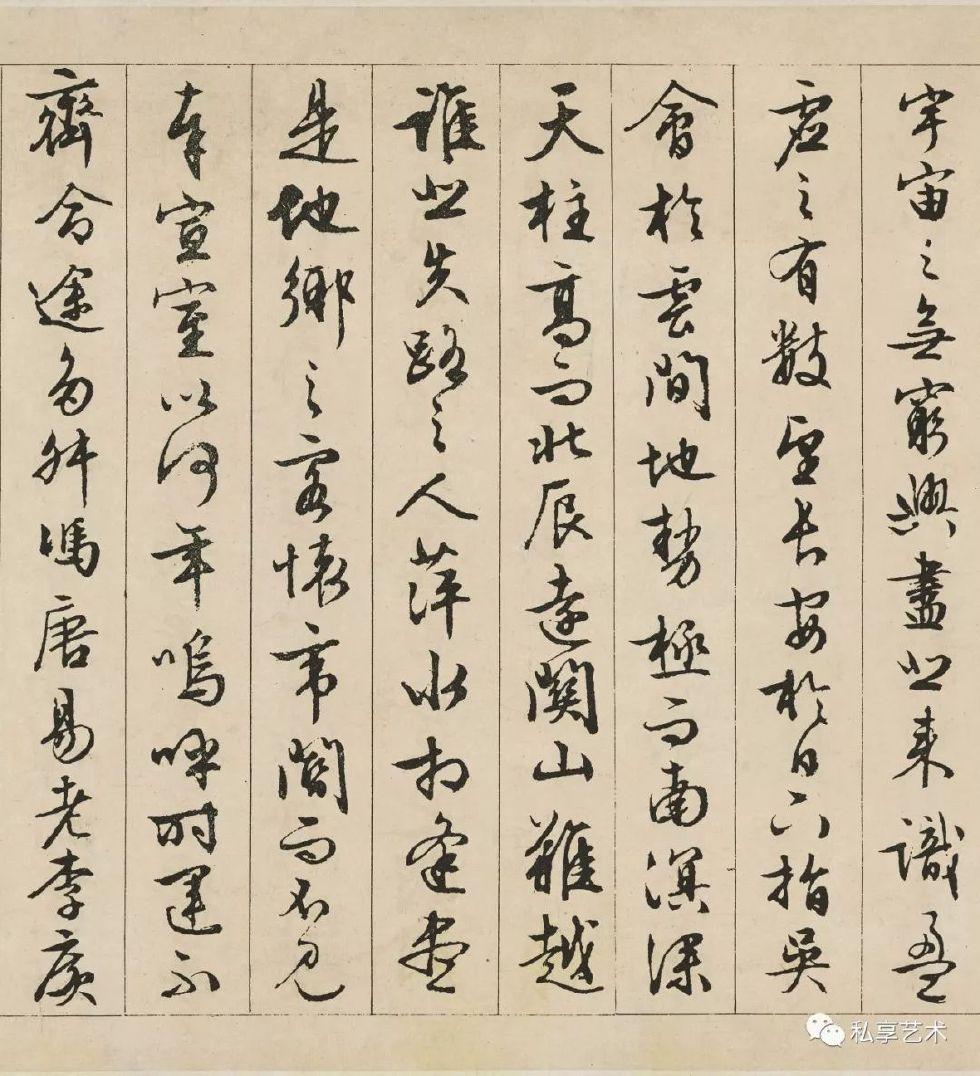 宇宙之無窮興盡悲来識盈
虛之有數望長安於日下指吳
會於雲間地勢極而南溟深
天柱高而北辰遠關山難越
誰悲失路之人萍水相逢盡
是他鄉之客懷帝閽而不見
奉宣室以何年嗚呼時運不
齊命途多舛馮唐易老李廣
私享艺术